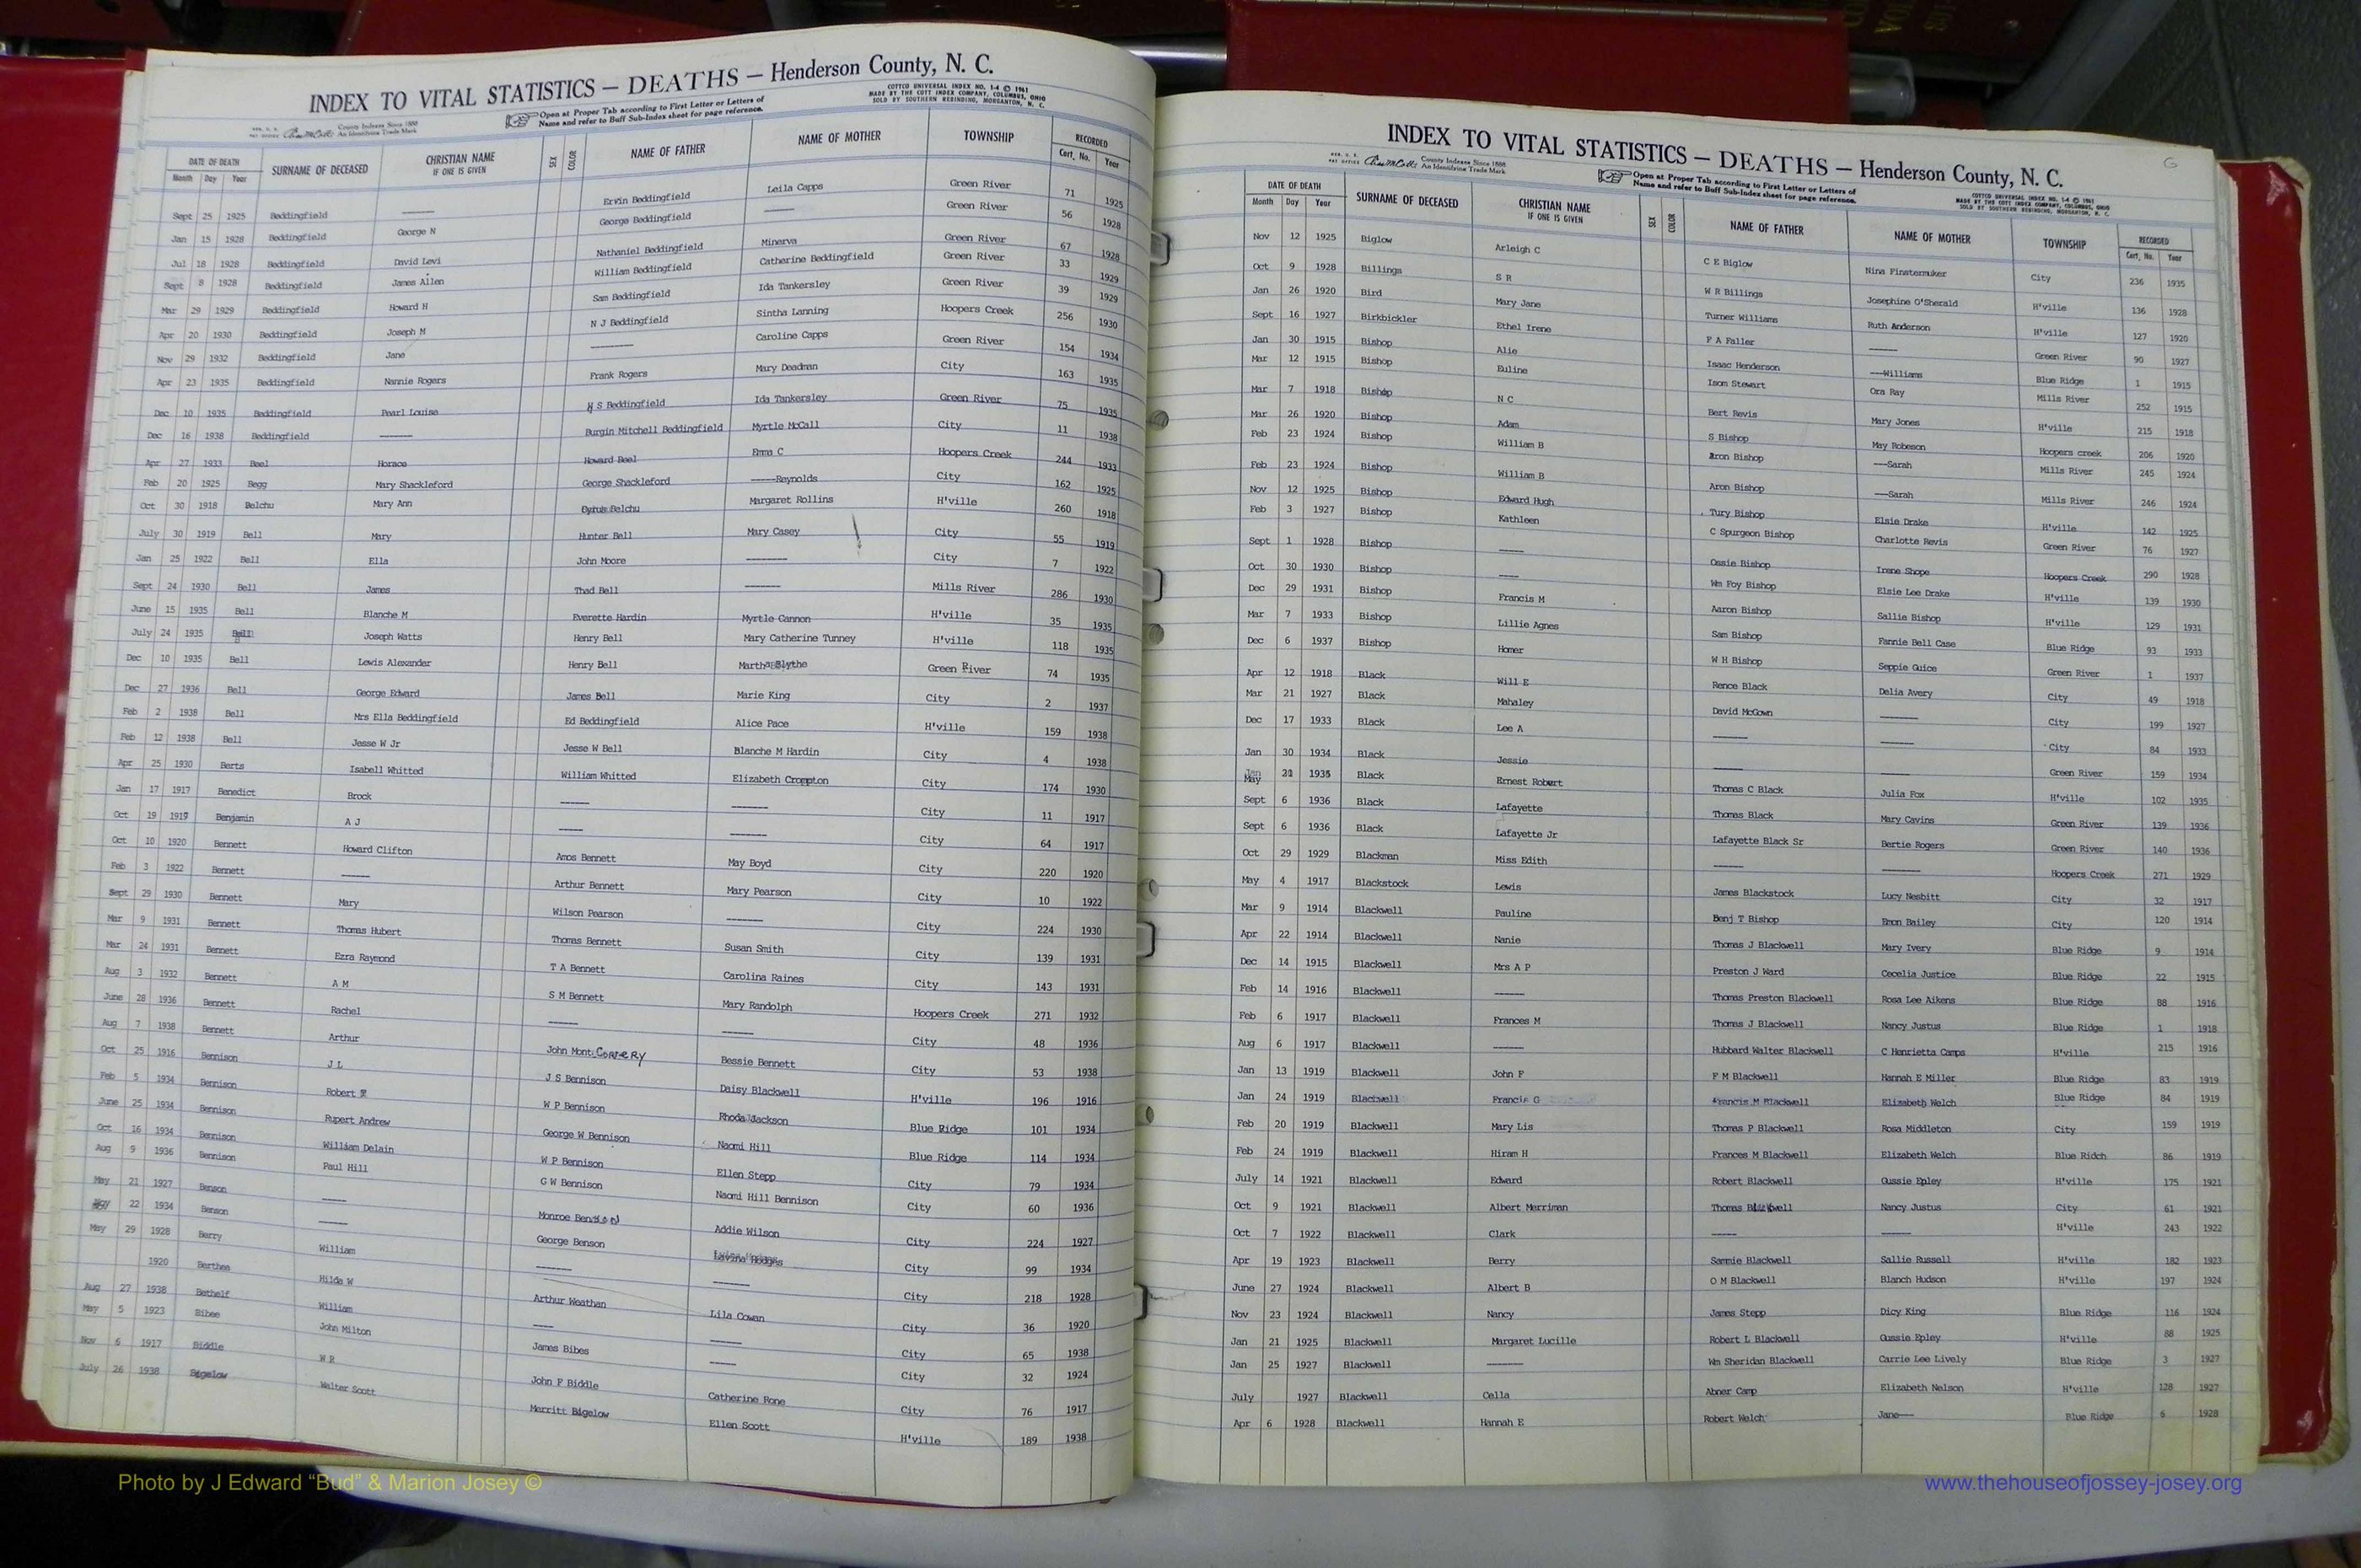 INDEX TO VITAL STATISTICS — DEATHS — Henderson County, N. C.
COTTCO UNIVERSAL INDEX NO. 1-4 © 1961
MADE BY THE COTT INDEX COMPANY, COLUMBUS, OHIO
SOLD BY SOUTHERN REBINDING, MORGANTON, N. C.
County Indexes Since 1888
An Identifying Trade Mark
Open at Proper Tab according to First Letter or Letters of
Name and refer to Buff Sub-Index sheet for page reference.
DATE OF DEATH SURNAME OF DECEASED CHRISTIAN NAME IF ONE IS GIVEN SEX COLOR NAME OF FATHER NAME OF MOTHER TOWNSHIP RECORDED
Month Day Year Cert. No. Year
Sept 25 1925 Beddingfield ——— Ervin Beddingfield Leila Capps Green River 71 1925
Jan 15 1928 Beddingfield George N George Beddingfield ——— Green River 56 1928
Jul 18 1928 Beddingfield David Levi Nathaniel Beddingfield Minerva Green River 67 1928
Sept 8 1928 Beddingfield James Allen William Beddingfield Catherine Beddingfield Green River 33 1929
Mar 29 1929 Beddingfield Howard H Sam Beddingfield Ida Tankersley Green River 39 1929
Apr 20 1930 Beddingfield Joseph M N J Beddingfield Sintha Lanning Hoopers Creek 256 1930
Nov 29 1932 Beddingfield Jane ——— Caroline Capps Green River 154 1934
Apr 23 1935 Beddingfield Nannie Rogers Frank Rogers Mary Deadman City 163 1935
Dec 10 1935 Beddingfield Pearl Louise H S Beddingfield Ida Tankersley Green River 75 1935
Dec 16 1938 Beddingfield ——— Burgin Mitchell Beddingfield Myrtle McCall City 11 1938
Apr 27 1933 Beel Horace Howard Beel Emma C Hoopers Creek 244 1933
Feb 20 1925 Begg Mary Shackleford George Shackleford ———Reynolds City 162 1925
Oct 30 1918 Belchu Mary Ann Belchu Margaret Rollins H'ville 260 1918
July 30 1919 Bell Mary Hunter Bell Mary Casey City 55 1919
Jan 25 1922 Bell Ella John Moore ——— City 7 1922
Sept 24 1930 Bell James Thad Bell ——— Mills River 286 1930
June 15 1935 Bell Blanche M Everette Hardin Myrtle Cannon H'ville 35 1935
July 24 1935 Bell Joseph Watts Henry Bell Mary Catherine Tunney H'ville 118 1935
Dec 10 1935 Bell Lewis Alexander Henry Bell Martha Blythe Green River 74 1935
Dec 27 1936 Bell George Edward James Bell Marie King City 2 1937
Feb 2 1938 Bell Mrs Ella Beddingfield Ed Beddingfield Alice Pace H'ville 159 1938
Feb 12 1938 Bell Jesse W Jr Jesse W Bell Blanche M Hardin City 4 1938
Apr 25 1930 Berts Isabell Whitted William Whitted Elizabeth Crompton City 174 1930
Jan 17 1917 Benedict Brock ——— ——— City 11 1917
Oct 19 1917 Benjamin A J ——— ——— City 64 1917
Oct 10 1920 Bennett Howard Clifton Amos Bennett May Boyd City 220 1920
Feb 3 1922 Bennett ——— Arthur Bennett Mary Pearson City 10 1922
Sept 29 1930 Bennett Mary Wilson Pearson ——— City 224 1930
Mar 9 1931 Bennett Thomas Hubert Thomas Bennett Susan Smith City 139 1931
Mar 24 1931 Bennett Ezra Raymond T A Bennett Carolina Raines City 143 1931
Aug 3 1932 Bennett A M S M Bennett Mary Randolph Hoopers Creek 271 1932
June 28 1936 Bennett Rachel ——— ——— City 48 1936
Aug 7 1938 Bennett Arthur John Montgomery Bessie Bennett City 53 1938
Oct 25 1916 Bennison J L J S Bennison Daisy Blackwell H'ville 196 1916
Feb 5 1934 Bennison Robert W P Bennison Rhoda Jackson Blue Ridge 101 1934
June 25 1934 Bennison Rupert Andrew George W Bennison Naomi Hill Blue Ridge 114 1934
Oct 16 1934 Bennison William Delain W P Bennison Ellen Stepp City 79 1934
Aug 9 1936 Bennison Paul Hill G W Bennison Naomi Hill Bennison City 60 1936
May 21 1927 Benson ——— Monroe Benson Addie Wilson City 224 1927
Nov 22 1934 Benson ——— George Benson Lavina Hodges City 99 1934
May 29 1928 Berry William ——— ——— City 218 1928
1920 Berthea Hilda W Arthur Weathan Lila Cowan City 36 1920
Aug 27 1938 Bethelf William ——— ——— City 65 1938
May 5 1923 Bibee John Milton James Bibes ——— City 32 1924
Nov 6 1917 Biddle W R John F Biddle Catherine Rone City 76 1917
July 26 1938 Bigelow Walter Scott Merritt Bigelow Ellen Scott H'ville 189 1938
INDEX TO VITAL STATISTICS — DEATHS — Henderson County, N. C.
County Indexes Since 1888
An Identifying Trade Mark
Open at Proper Tab according to First Letter or Letters of
Name and refer to Buff Sub-Index sheet for page reference.
COTTCO UNIVERSAL INDEX NO. 1-4 © 1961
MADE BY THE COTT INDEX COMPANY, COLUMBUS, OHIO
SOLD BY SOUTHERN REBINDING, MORGANTON, N. C.
DATE OF DEATH SURNAME OF DECEASED CHRISTIAN NAME IF ONE IS GIVEN SEX COLOR NAME OF FATHER NAME OF MOTHER TOWNSHIP RECORDED
Month Day Year Cert. No. Year
Nov 12 1925 Biglow Arleigh C C E Biglow Nina Finstermuker City 236 1935
Oct 9 1928 Billings S R W R Billings Josephine O'Sherald H'ville 136 1928
Jan 26 1920 Bird Mary Jane Turner Williams Ruth Anderson H'ville 127 1920
Sept 16 1927 Birkbickler Ethel Irene P A Faller ——— Green River 90 1927
Jan 30 1915 Bishop Alie Isaac Henderson ———Williams Blue Ridge 1 1915
Mar 12 1915 Bishop Euline Isom Stewart Ora Ray Mills River 252 1915
Mar 7 1918 Bishop N C Bert Revis Mary Jones H'ville 215 1918
Mar 26 1920 Bishop Adam S Bishop May Robeson Hoopers creek 206 1920
Feb 23 1924 Bishop William B Aron Bishop ———Sarah Mills River 245 1924
Feb 23 1924 Bishop William B Aron Bishop ———Sarah Mills River 246 1924
Nov 12 1925 Bishop Edward Hugh Tury Bishop Elsie Drake H'ville 142 1925
Feb 3 1927 Bishop Kathleen C Spurgeon Bishop Charlotte Revis Green River 76 1927
Sept 1 1928 Bishop ——— Ossie Bishop Irene Shope Hoopers Creek 290 1928
Oct 30 1930 Bishop ——— Wm Foy Bishop Elsie Lee Drake H'ville 139 1930
Dec 29 1931 Bishop Francis M Aaron Bishop Sallie Bishop H'ville 129 1931
Mar 7 1933 Bishop Lillie Agnes Sam Bishop Fannie Bell Case Blue Ridge 93 1933
Dec 6 1937 Bishop Homer W H Bishop Seppie Guice Green River 1 1937
Apr 12 1918 Black Will E Rence Black Delia Avery City 49 1918
Mar 21 1927 Black Mahaley David McGown ——— City 199 1927
Dec 17 1933 Black Lee A ——— ——— City 84 1933
Jan 30 1934 Black Jessie ——— ——— Green River 159 1934
May 21 1935 Black Ernest Robert Thomas C Black Julia Fox H'ville 102 1935
Sept 6 1936 Black Lafayette Thomas Black Mary Cavins Green River 139 1936
Sept 6 1936 Black Lafayette Jr Lafayette Black Sr Bertie Rogers Green River 140 1936
Oct 29 1929 Blackman Miss Edith ——— ——— Hoopers Creek 271 1929
May 4 1917 Blackstock Lewis James Blackstock Lucy Nesbitt City 32 1917
Mar 9 1914 Blackwell Pauline Benj T Bishop Emon Bailey City 120 1914
Apr 22 1914 Blackwell Nanie Thomas J Blackwell Mary Ivery Blue Ridge 9 1914
Dec 14 1915 Blackwell Mrs A P Preston J Ward Cecelia Justice Blue Ridge 22 1915
Feb 14 1916 Blackwell ——— Thomas Preston Blackwell Rosa Lee Aikens Blue Ridge 88 1916
Feb 6 1917 Blackwell Frances M Thomas J Blackwell Nancy Justus Blue Ridge 1 1918
Aug 6 1917 Blackwell ——— Hubbard Walter Blackwell C Henrietta Camps H'ville 215 1916
Jan 13 1919 Blackwell John F F M Blackwell Hannah E Miller Blue Ridge 83 1919
Jan 24 1919 Blackwell Francis G Francis M Blackwell Elizabeth Welch Blue Ridge 84 1919
Feb 20 1919 Blackwell Mary Lis Thomas P Blackwell Rosa Middleton City 159 1919
Feb 24 1919 Blackwell Hiram H Frances M Blackwell Elizabeth Welch Blue Ridch 86 1919
July 14 1921 Blackwell Edward Robert Blackwell Gussie Epley H'ville 175 1921
Oct 9 1921 Blackwell Albert Merriman Thomas Blackwell Nancy Justus City 61 1921
Oct 7 1922 Blackwell Clark ——— ——— H'ville 243 1922
Apr 19 1923 Blackwell Berry Sammie Blackwell Sallie Russell H'ville 182 1923
June 27 1924 Blackwell Albert B O M Blackwell Blanch Hudson H'ville 197 1924
Nov 23 1924 Blackwell Nancy James Stepp Dicy King Blue Ridge 116 1924
Jan 21 1925 Blackwell Margaret Lucille Robert L Blackwell Gussie Epley H'ville 88 1925
Jan 25 1927 Blackwell ——— Wm Sheridan Blackwell Carrie Lee Lively Blue Ridge 3 1927
July 1927 Blackwell Cella Abner Camp Elizabeth Nelson H'ville 128 1927
Apr 6 1928 Blackwell Hannah E Robert Welch Jane—— Blue Ridge 6 1928
Photo by J Edward “Bud” & Marion Josey ©
www.thehouseofjossey-josey.org